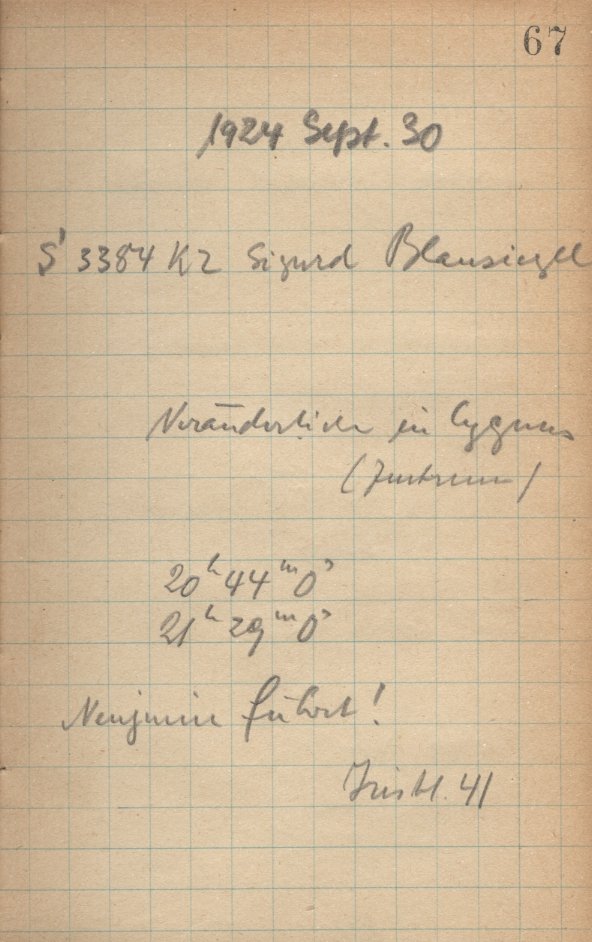 67
1924 Sept. 30
S 3384 KZ Sigurd Blausiegel
Veränderliche in Cygnus
(Zentrum)
20ʰ 44ᵐ 0ˢ
21ʰ 29ᵐ 0ˢ
führt!
41